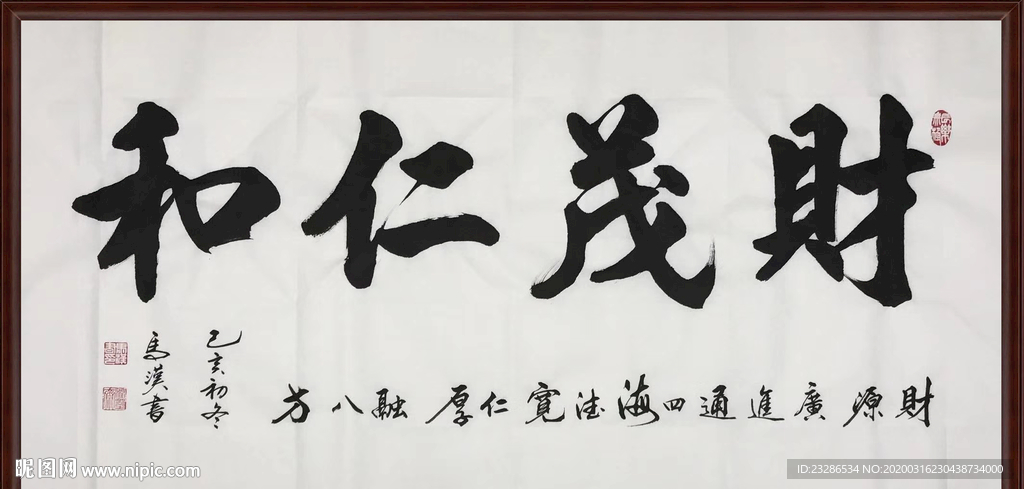 財茂仁和
財源廣進通四海德寬仁厚融八方
己亥初冬
馬漢書
昵图网 www.nipic.com
ID:23286534 NO:20200316230438734000